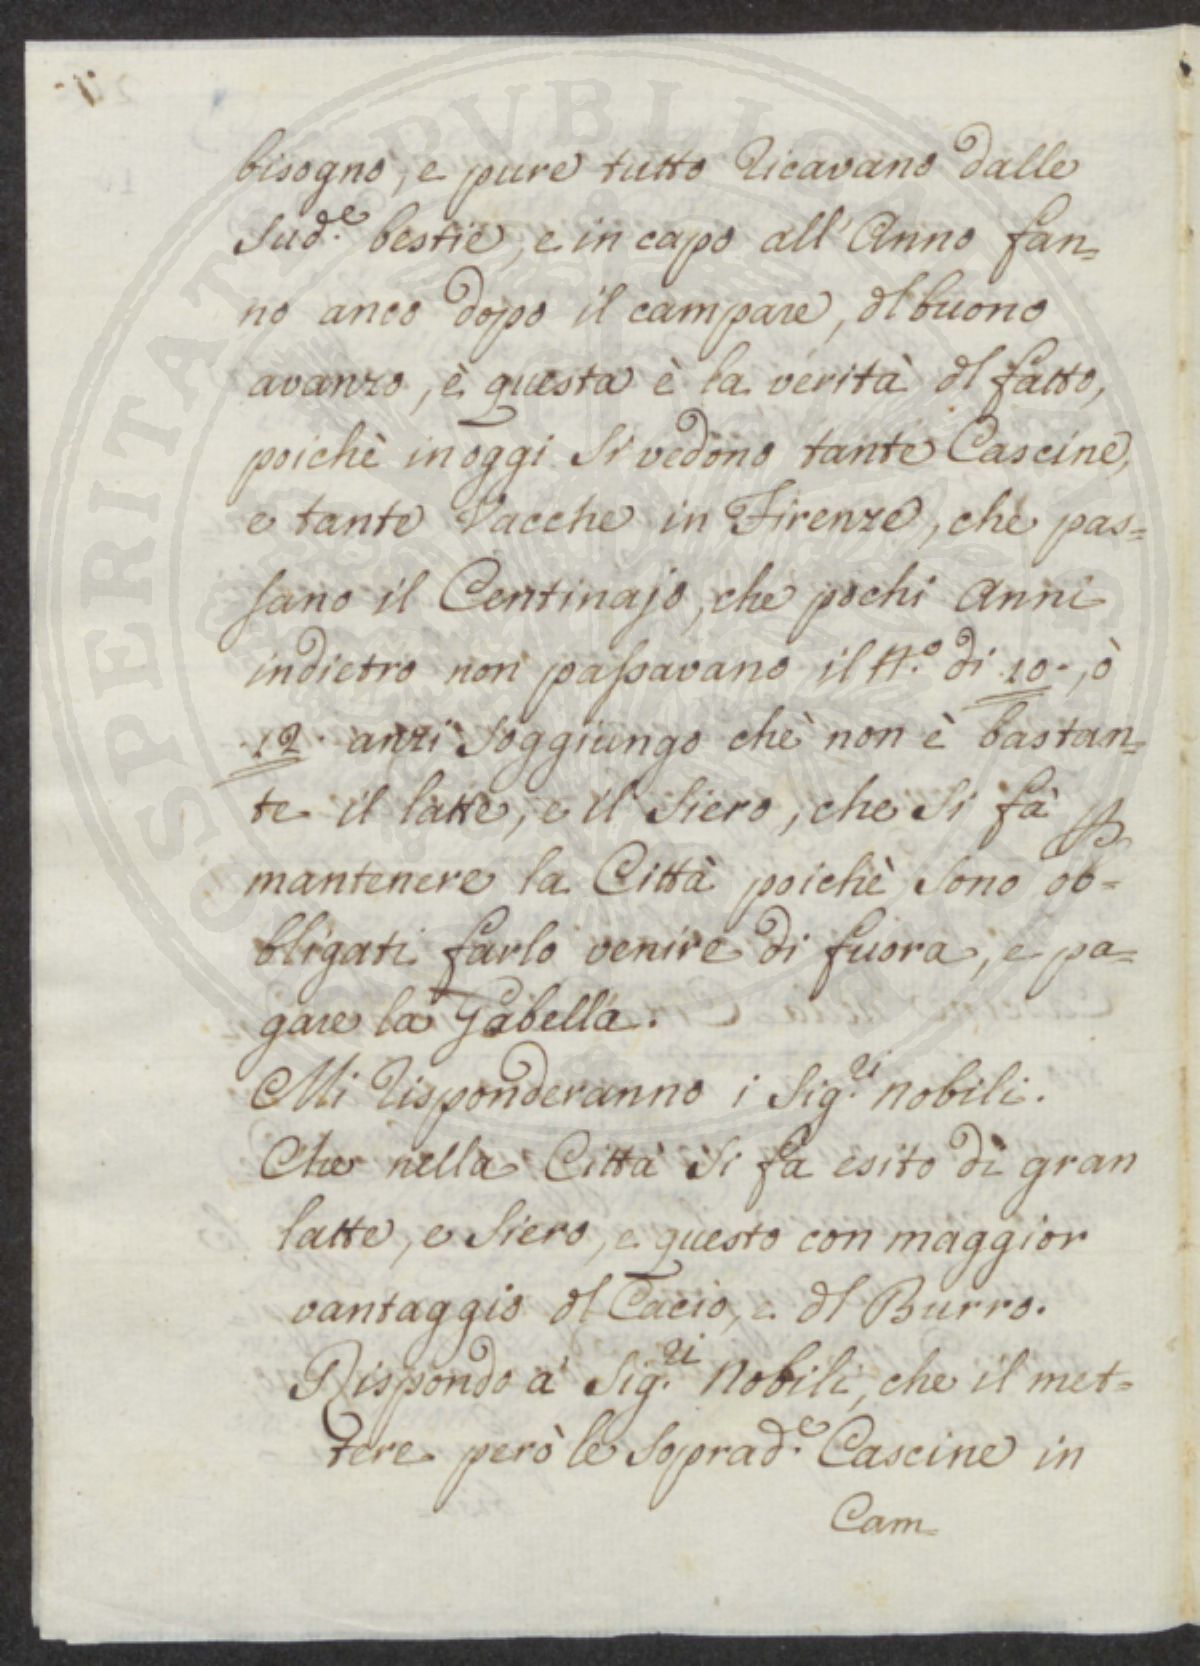 bisogno, e pure tutto ricavano dalle
Sud.e bestie, e in capo all'Anno fan=
no anco dopo il campare, dl buono
avanzo, è questa è la verità dl fatto,
poichè in oggi Si vedono tante Cascine,
e tante Vacche in Firenze, che pas=
sano il Centinajo, che pochi Anni
indietro non passavano il N.o di 10., ò
12. anzi Soggiungo chè non è bastan=
te il latte, e il Siero, che Si fà p
mantenere la Città poichè Sono ob=
bligati farlo venire di fuora, e pa=
gare la Gabella.
Mi risponderanno i Sig.ri nobili.
Che nella Città Si fa esito di gran
latte, e Siero, e questo con maggior
vantaggio dl Cacio, e dl Burro.
Rispondo a' Sig.ri Nobili, che il met=
tere però le Soprad.e Cascine in
Cam=
SPERITATI PUBLICA